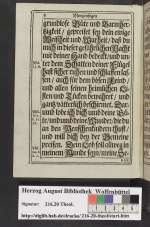 8 Morgensegen
grundlose Güte und Barmher-
tzigkeit/ gepreiset sey dein ewige
Weißheit und Warheit/ daß du
mich in dieser gefährlichen Nacht
mit deiner Hand bedeckt/ und un-
ter dem Schatten deiner Flügel
hast sicher ruhen und schlaffen las-
sen/ auch für dem bösen Feind/
und allen seinen heimlichen Li-
sten und Tücken bewahret/ und
gantz väterlich beschirmet. Dar-
umb lobe ich dich umb deine Gü-
te/und umb deine Wunder/die du
an den Menschenkindern thust/
und will dich bey der Gemeine
preisen. Dein Lob soll allzeit in
meinem Munde seyn/ meine See-
Herzog August Bibliothek Wolfenbüttel
Signatur: 216.20 Theol.
http://diglib.hab.de/drucke/216-20-theol/start.htm